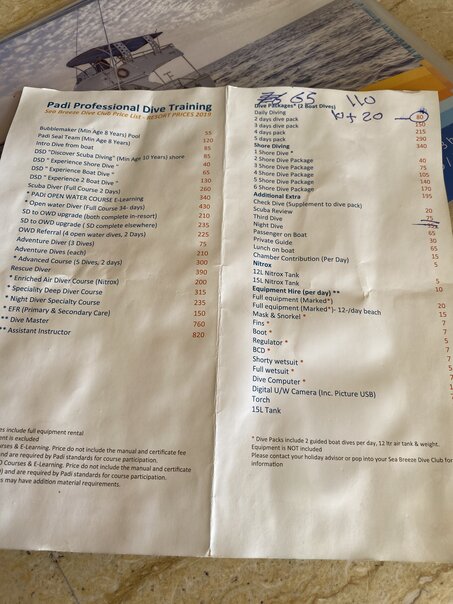 Padi Professional Dive Training
Sea Breeze Dive Club Price List - RESORT PRICES 2019
Bubblemaker (Min Age 8 Years) Pool 55
Padi Seal Team (Min Age 8 Years) 120
Intro Dive from boat 85
DSD "Discover Scuba Diving" (Min Age 10 Years) shore 85
DSD " Experience Shore Dive " 40
DSD " Experience Boat Dive " 65
DSD " Experience 2 Boat Dive " 130
Scuba Diver (Full Course 2 Days) 260
* PADI OPEN WATER COURSE E-Learning 340
* Open water Diver (Full Course 34- days) 430
SD to OWD upgrade (both complete in-resort) 210
SD to OWD upgrade ( SD complete elsewhere) 235
OWD Referral (4 Open water dives, 2 Days) 225
Adventure Diver (3 Dives) 75
Adventure Dives (each) 210
* Advanced Course (5 Dives; 2 days) 300
Rescue Diver 390
* Enriched Air Diver Course (Nitrox) 200
* Speciality Deep Diver Course 315
* Night Diver Specialty Course 235
* EFR (Primary & Secondary Care) 150
** Dive Master 760
** Assistant Instructor 820
es include full equipment rental
ent is excluded
ourses & E-Learning. Price do not include the manual and certificate fee
and are required by Padi standards for course participation.
D Courses & E-Learning. Price do not include the manual and certificate
) and are required by Padi standards for course participation.
s may have addition material requirements.
65 110
10% 20
Dive Packages* (2 Boat Dives)
Daily Diving 80
2 days dive pack 150
3 days dive pack 215
4 days pack 290
5 days pack
Shore Diving
1 Shore Dive * 40
2 Shore Dive Package 75
3 Shore Dive Package 105
4 Shore Dive Package 140
5 Shore Dive Package 170
6 Shore Dive Package 195
Additional Extra
Check Dive (Supplement to dive pack) 20
Scuba Review 75
Third Dive 35
Night Dive 65
Passenger on Boat 30
Private Guide
Lunch on boat 15
Chamber Contribution (Per Day) 5
Nitrox
12L Nitrox Tank 5
15L Nitrox Tank 10
Equipment Hire (per day) **
Full equipment (Marked*) 20
Full equipment (Marked*)- 12/day beach 15
Mask & Snorkel * 7
Fins * 5
Boot * 7
Regulator * 5
BCD * 7
Shorty wetsuit * 5
Full wetsuit * 7
Dive Computer *
Digital U/W Camera (Inc. Picture USB)
Torch
15L Tank
* Dive Packs include 2 guided boat dives per day, 12 ltr air tank & weight.
Equipment is NOT included
Please contact your holiday advisor or pop into your Sea Breeze Dive Club for
information